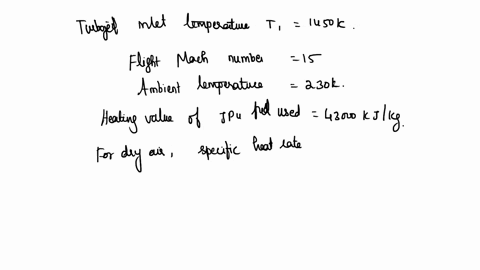 Turbojet inlet temperature T1 = 1450k.
Flight Mach number = 15
Ambient temperature = 230k.
Heating value of JP4 fuel used = 43000 kJ/kg.
For dry air, specific heat rate